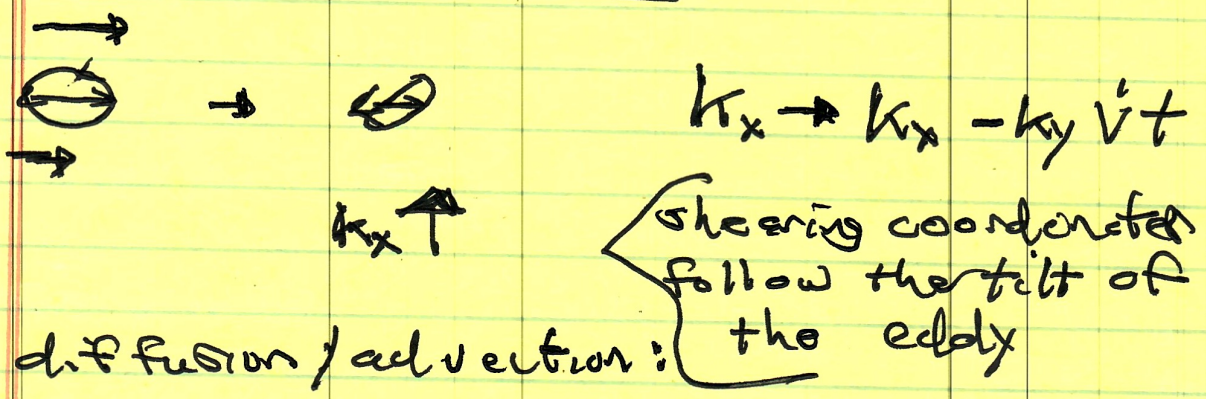 kx → kx - ky v̇ t
kx ↑
shearing coordinates
follow the tilt of
the eddy
diffusion / advection: